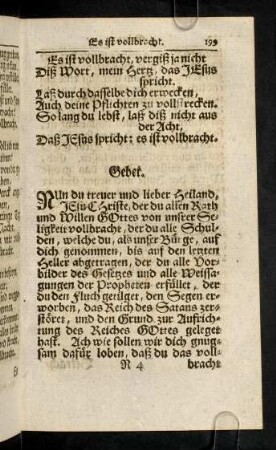 Es ist vollbracht. 199
Es ist vollbracht, vergiß ja nicht
Diß Wort, mein Hertz, das JEsus
spricht.
Laß durch dasselbe dich erwecken,
Auch deine Pflichten zu vollstrecken.
So lang du lebst, laß diß nicht aus
der Acht,
Daß JEsus spricht: es ist vollbracht.
Gebet.
NUn du treuer und lieber Heiland,
JEsu Christe, der du allen Rath
und Willen GOttes von unsrer Se-
ligkeit vollbracht, der du alle Schul-
den, welche du, als unser Bürge, auf
dich genommen, bis auf den letzten
Heller abgetragen, der du alle Vor-
bilder des Gesetzes und alle Weissa-
gungen der Propheten erfüllet, der
du den Fluch getilget, den Segen er-
worben, das Reich des Satans zer-
störet, und den Grund zur Aufrich-
tung des Reiches GOttes geleget
hast. Ach wie sollen wir dich gnug-
sam dafür loben, daß du das voll-
N 4 bracht